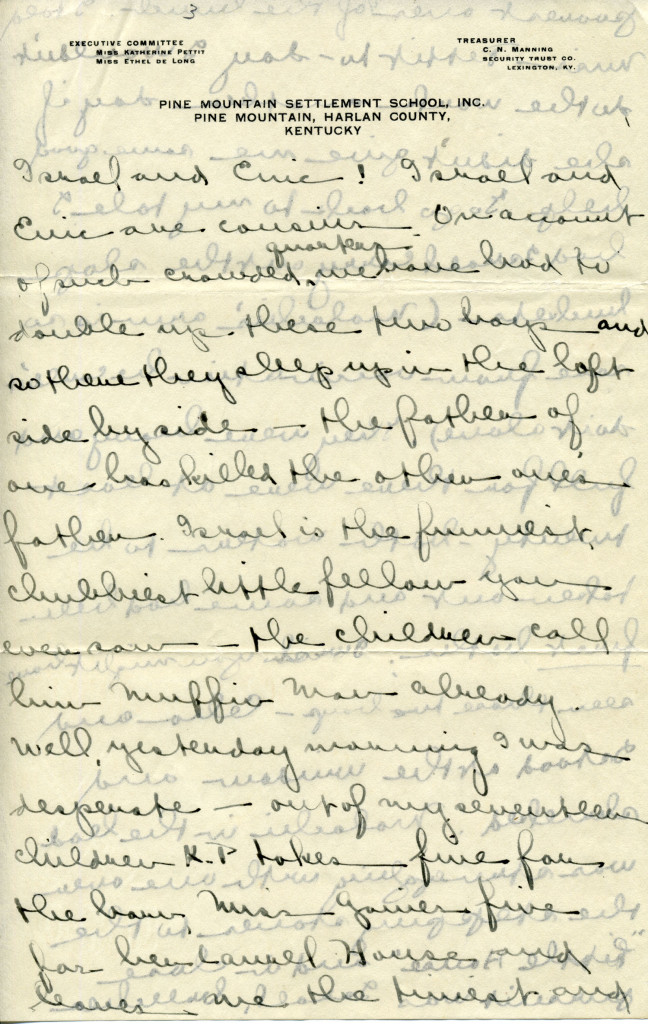 3
EXECUTIVE COMMITTEE
MISS KATHERINE PETTIT
MISS ETHEL DE LONG
TREASURER
C. N. MANNING
SECURITY TRUST CO.
LEXINGTON, KY.
PINE MOUNTAIN SETTLEMENT SCHOOL, INC.
PINE MOUNTAIN, HARLAN COUNTY,
KENTUCKY
Israel and Enic! Israel and
Enic are cousins. On account
quarters
of such crowded, we have had to
double up these two boys and
so there they sleep up in the loft
side by side – the father of
one has killed the other one's
father. Israel is the funniest,
chubbiest little fellow you
ever saw – the children call
him Muffin Man already.
Well, yesterday morning I was
desperate – out of my seventeen
children K.P takes five for
the barn, Miss Gaines five
for her Laurel House and
leaves me the tiniest and